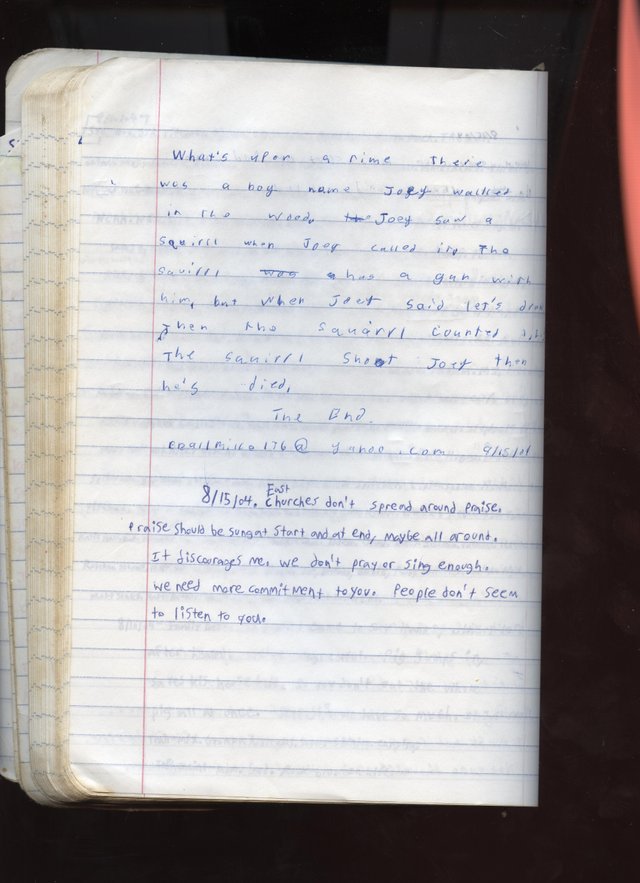 What's upon a rime There
was a boy name Joey walked
in the woods the Joey saw a
squirrl when Joey called it, The
squirrl was has a gun with
him, but when Joey said let's
Then the squarrl counted
The squirrl shoot Joey then
he's died,
The End.
@ yahoo.com 8/15/04
8/15/04. East Churches don't spread around praise.
Praise should be sung at start and at end, maybe all around.
It discourages me. we don't pray or sing enough.
we need more commitment to you. People don't seem
to listen to you.